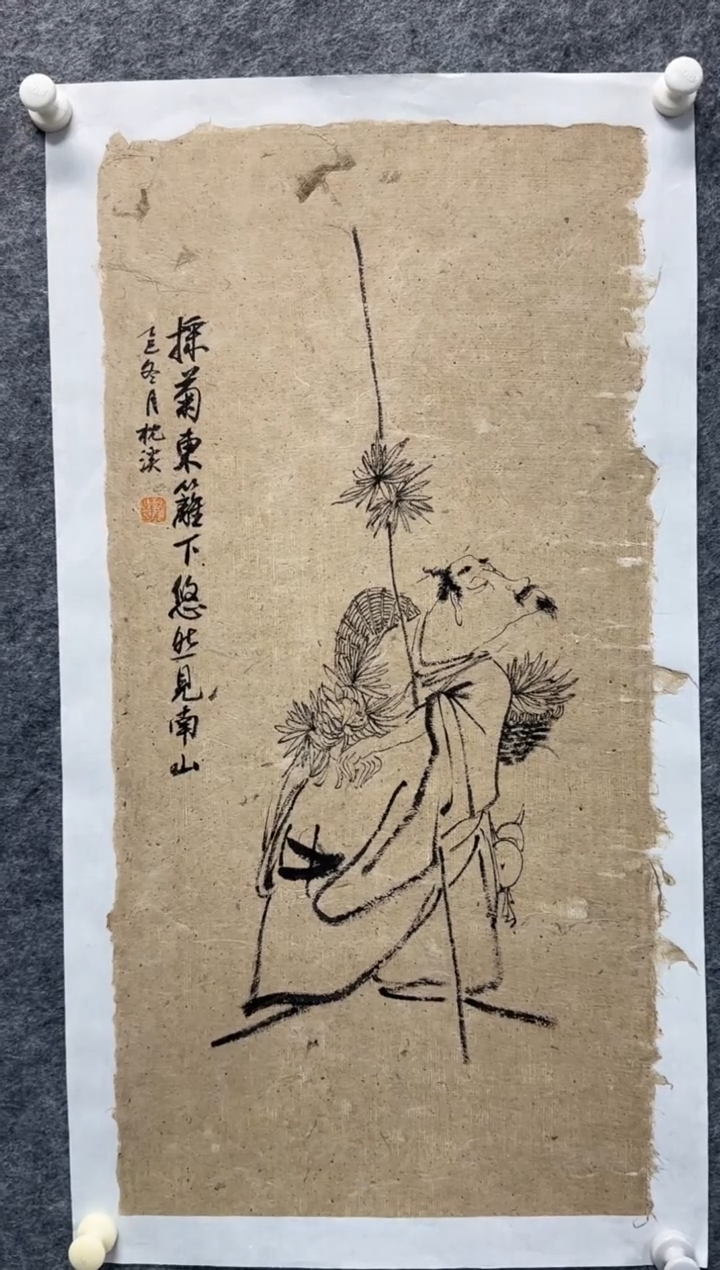 採菊東籬下悠然見南山
乙巳冬月枕溪